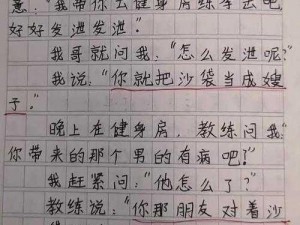 意："我带你去健身房练拳去吧
好好发泄发泄。"
我哥就问我："怎么发泄呢？"
我说："你就把沙袋当成嫂
子。"
晚上在健身房，教练问我："
你带来的那个男的有病吧？"
我赶紧问："他怎么了？"
教练说："你那朋友对着沙